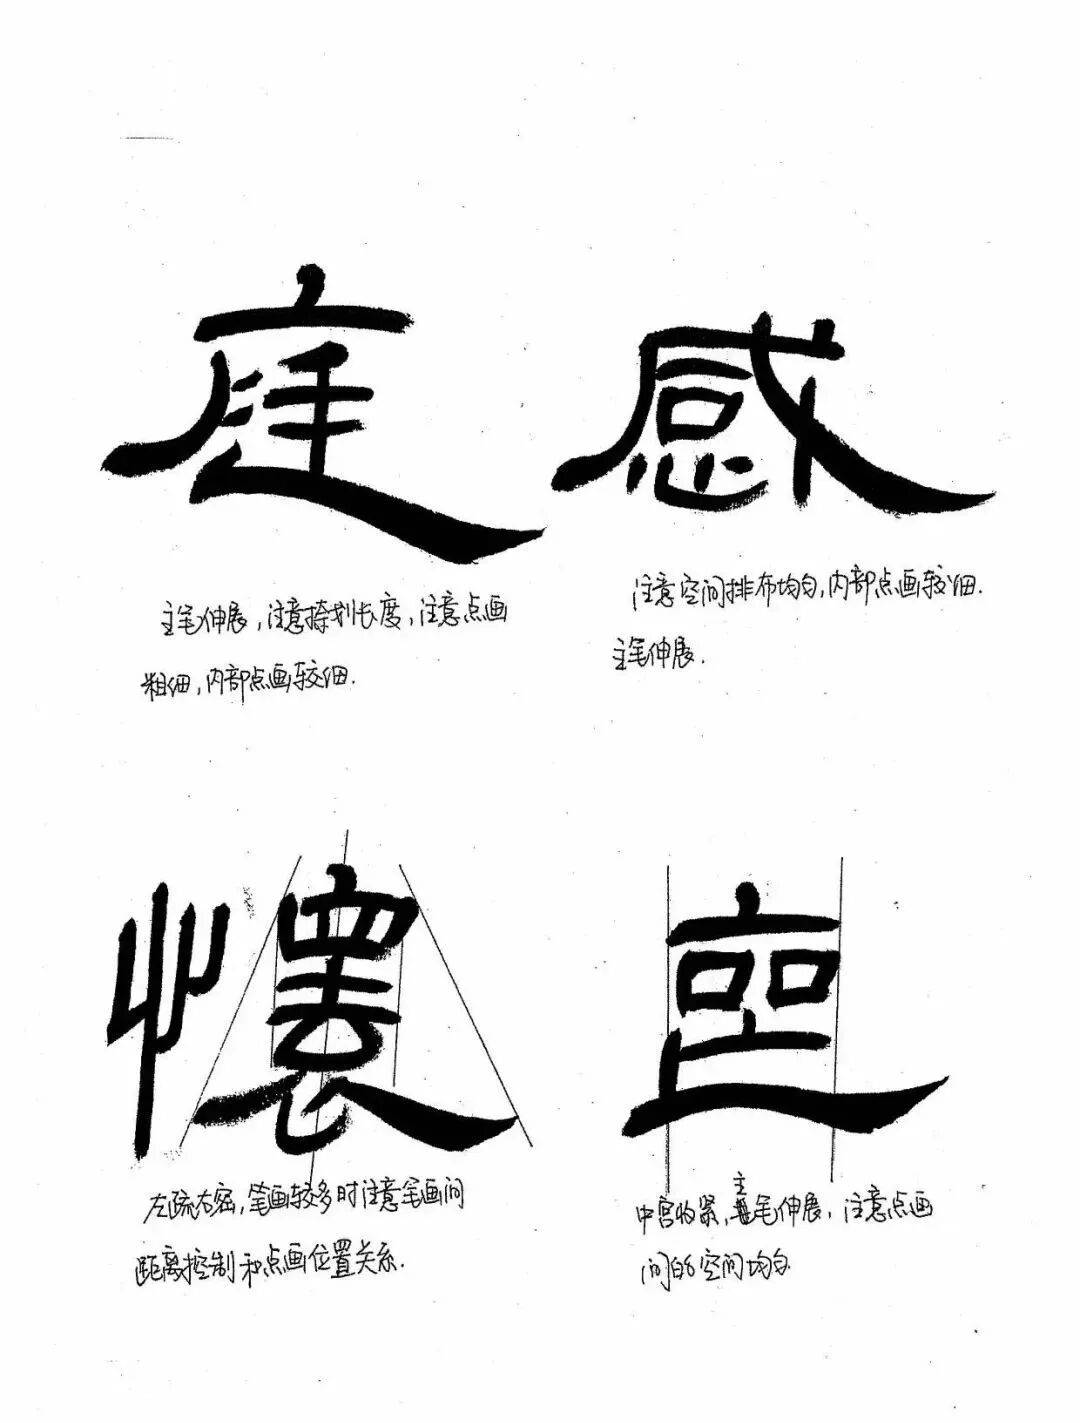 庭
主笔伸展，注意捺划长度，注意点画
粗细，内部点画较细.
感
注意空间排布均匀，内部点画较细.
主笔伸展.
懷
左疏右密，笔画较多时注意笔画间
距离控制和点画位置关系.
中宫收紧，主笔伸展，注意点画
间的空间均匀